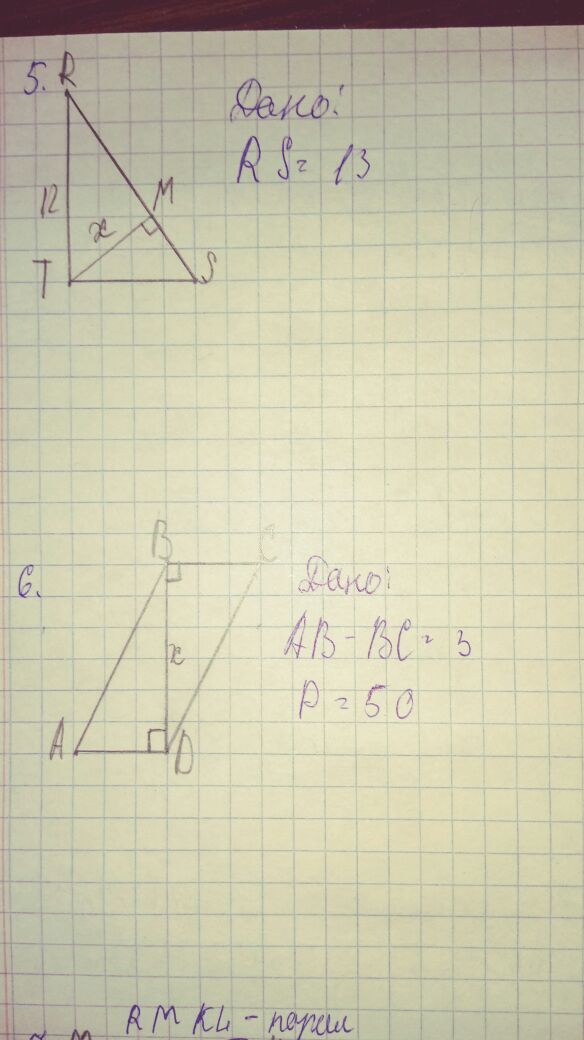 5. R
Дано:
RS = 13
12
M
x
T
S
B
C
6.
Дано:
AB - BC = 3
x
P = 50
A
D
RMKL - парал
M